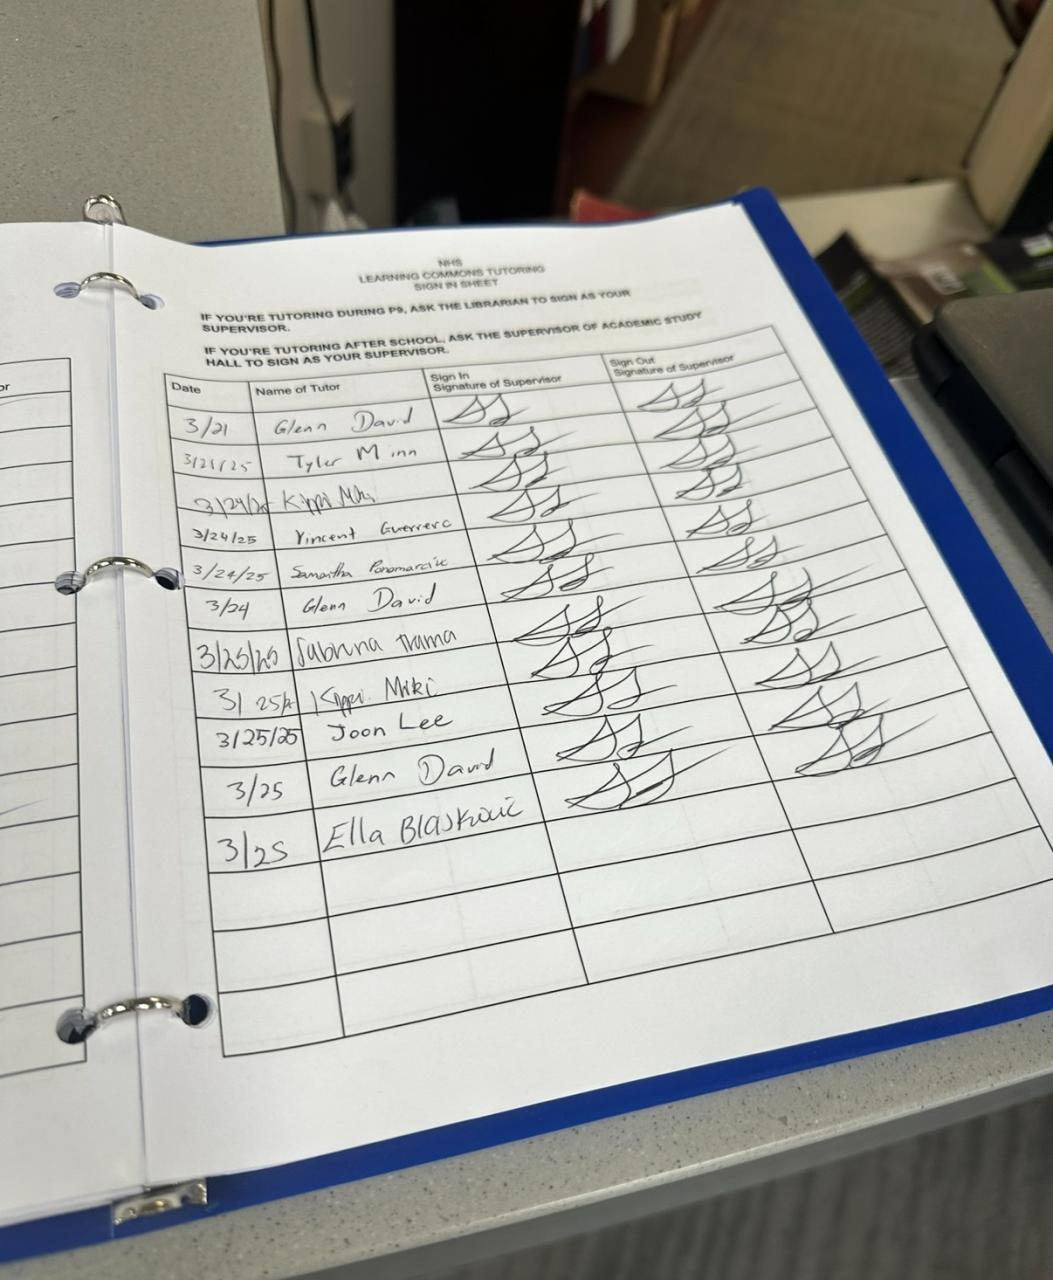 NHS
LEARNING COMMONS TUTORING
SIGN IN SHEET
IF YOU'RE TUTORING DURING P9, ASK THE LIBRARIAN TO SIGN AS YOUR
SUPERVISOR.
IF YOU'RE TUTORING AFTER SCHOOL, ASK THE SUPERVISOR OF ACADEMIC STUDY
HALL TO SIGN AS YOUR SUPERVISOR.
Date Name of Tutor Sign In Signature of Supervisor Sign Out Signature of Supervisor
3/21 Glenn David
3/21/25 Tyler Minn
Kippi
3/24/25 Vincent Guerrero
3/24/25 Samantha
3/24 Glenn David
3/25/25 Sabrina Trama
3/25 Kippi Miki
3/25/25 Joon Lee
3/25 Glenn David
3/25 Ella Blaskovic
or